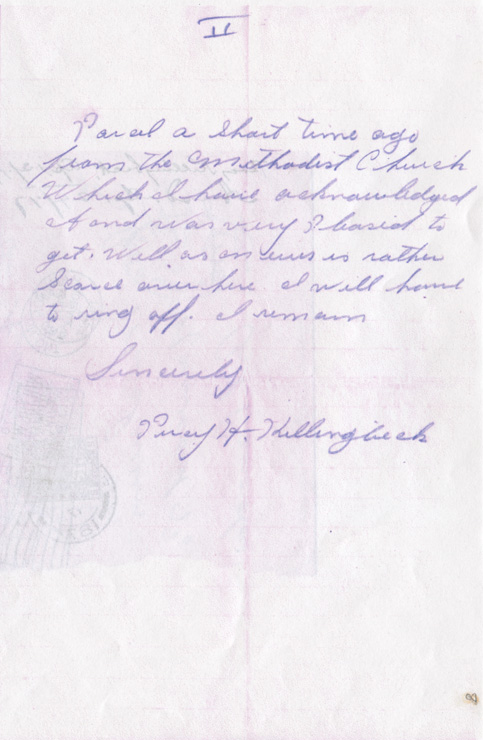 II
Parcel a short time ago
from the Methodist Church
Which I have acknowledged
And was very Pleased to
get. Well as news is rather
Scarce over here I will have
to ring off. I remain
Sincerely
Percy H. Killingbeck
8